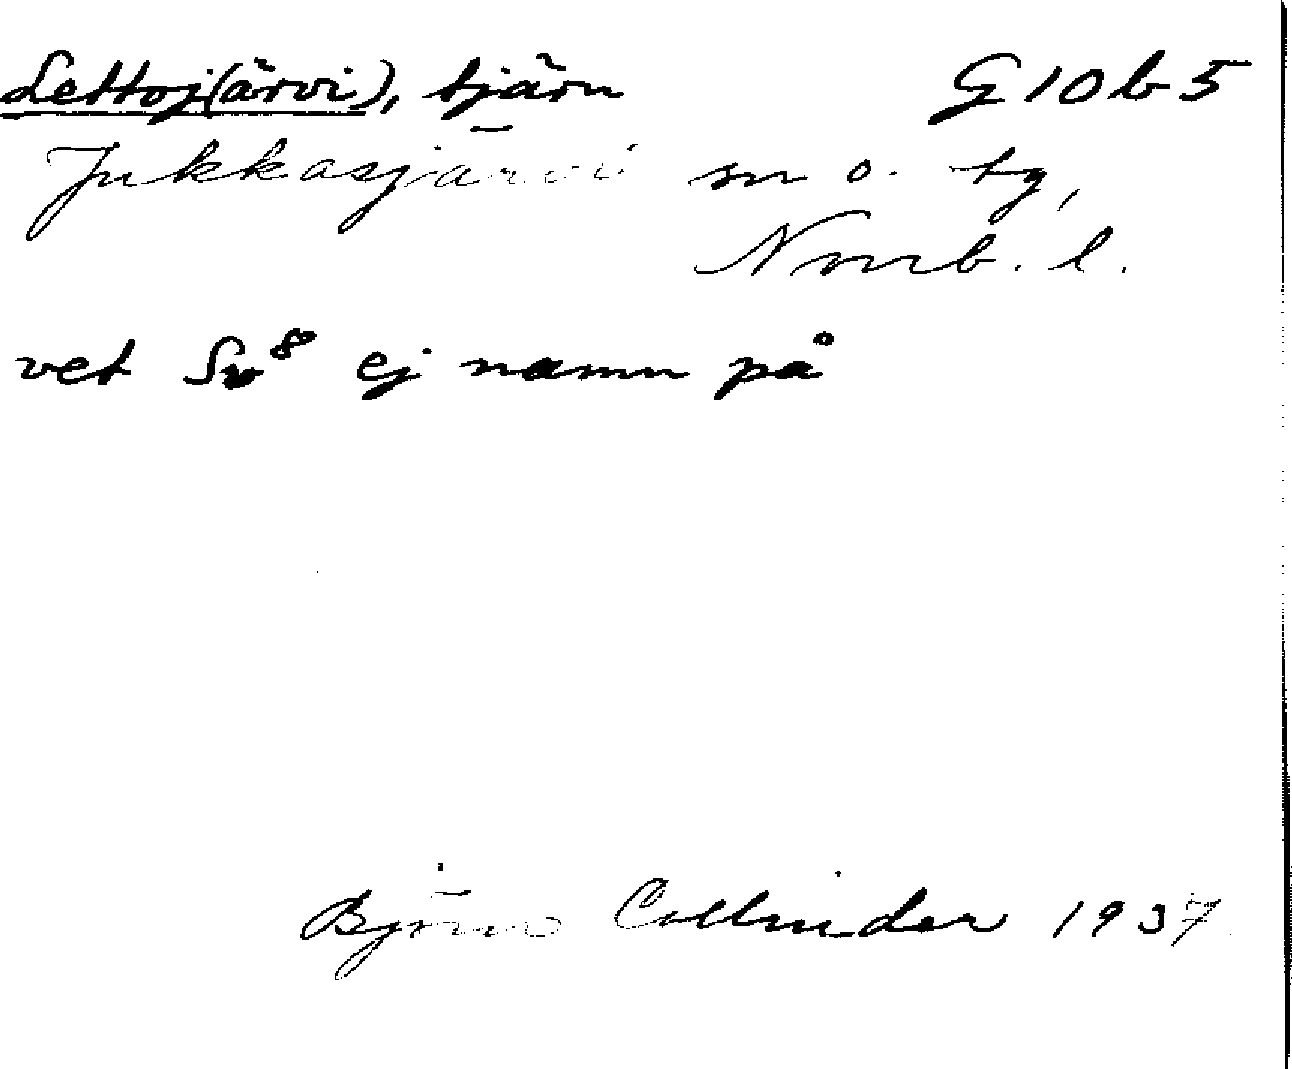 Lettoj(ärvi), tjärn G10b5
Jukkasjärvi sn o. tg,
Norrb. l.
vet Sv⁸ ej namn på
Björn Collinder 1937